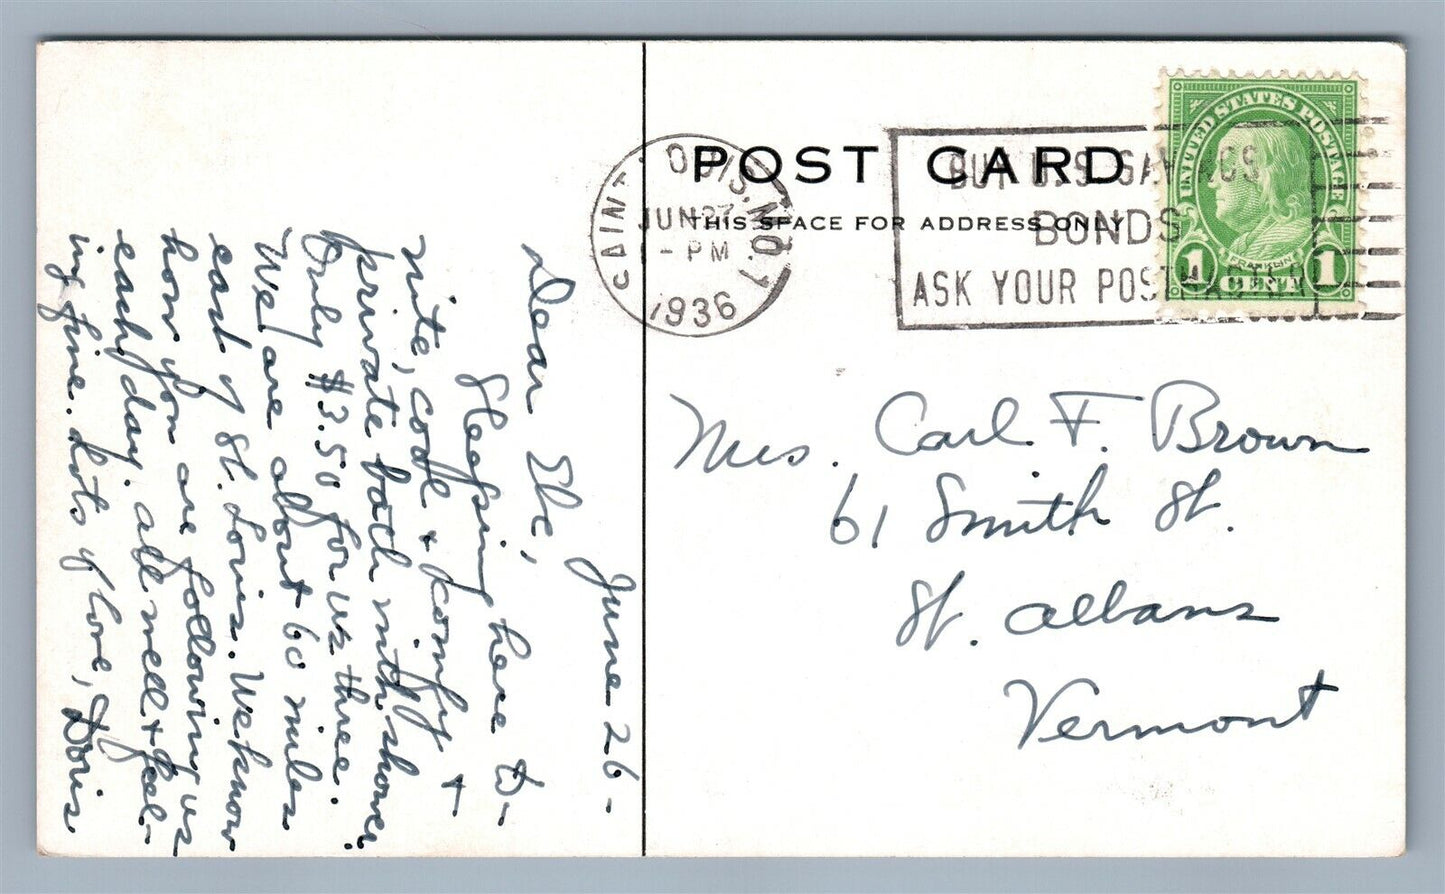 June 26-
Dear Eke,
Sleeping here to-
nite, cool & comfy &
private bath with shower.
Only $3.50 for us three.
We are about 60 miles
east of St. Louis. We know
how you are following us
each day. All well & feel-
ing fine. Lots of love, Doris.
POST CARD
THIS SPACE FOR ADDRESS ONLY
SAINT LOUIS, MO. 1
JUN 27
1 - PM
1936
BUY U.S. SAVINGS
BONDS
ASK YOUR POSTMASTER
UNITED STATES POSTAGE
FRANKLIN
1 CENT 1
Mrs. Carl F. Brown
61 Smith St.
St. Albans
Vermont